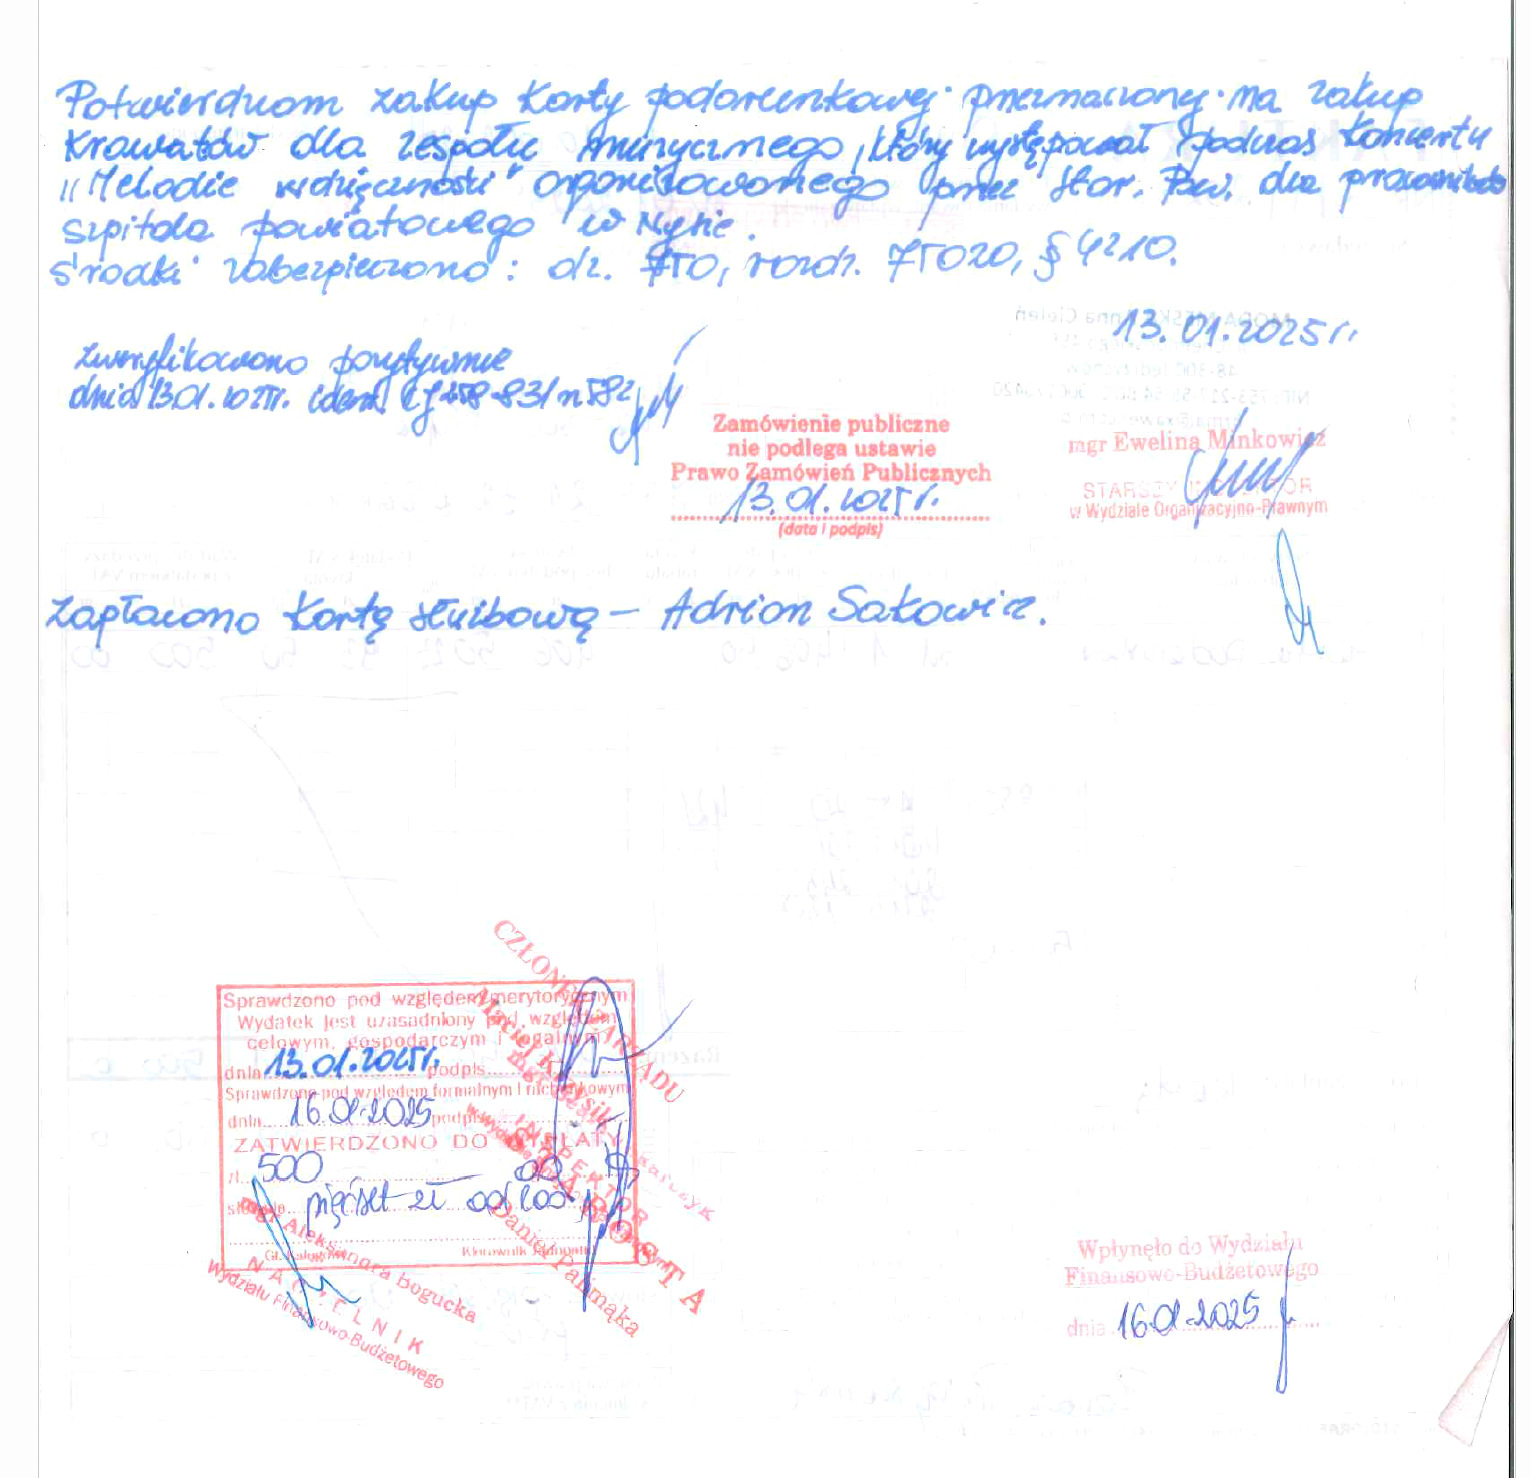 Potwierdzam zakup karty podarunkowej przeznaczonej na zakup
krawatów dla zespołu muzycznego, który występował podczas koncertu
"Melodie wdzięczności" organizowanego przez Star. Pow. dla pracowników
szpitala powiatowego w Nysie.
Środki zabezpieczono: dz. 750, rozdz. 75020, § 4210.
13.01.2025 r.
Zweryfikowano pozytywnie
dnia 13.01.2025r. iden.
Zamówienie publiczne
nie podlega ustawie
Prawo Zamówień Publicznych
13.01.2025 r.
(data i podpis)
mgr Ewelina Minkowicz
STARSZY INSPEKTOR
w Wydziale Organizacyjno-Prawnym
Zapłacono kartą służbową – Adrian Sakowicz.
CZŁONEK ZARZĄDU
Sprawdzono pod względem merytorycznym
Wydatek jest uzasadniony pod względem
celowym, gospodarczym i legalnym
dnia 13.01.2025r. podpis
Sprawdzono pod względem formalnym i rachunkowym
dnia 16.01.2025 podpis
ZATWIERDZONO DO WYPŁATY
zł 500 00
słownie pięćset zł 00/100
Gł. Księgowy Kierownik Jednostki
INSPEKTOR
STAROSTA
Daniel Palimąka
mgr Aleksandra Bogucka
NACZELNIK
Wydziału Finansowo-Budżetowego
Wpłynęło do Wydziału
Finansowo-Budżetowego
dnia 16.01.2025